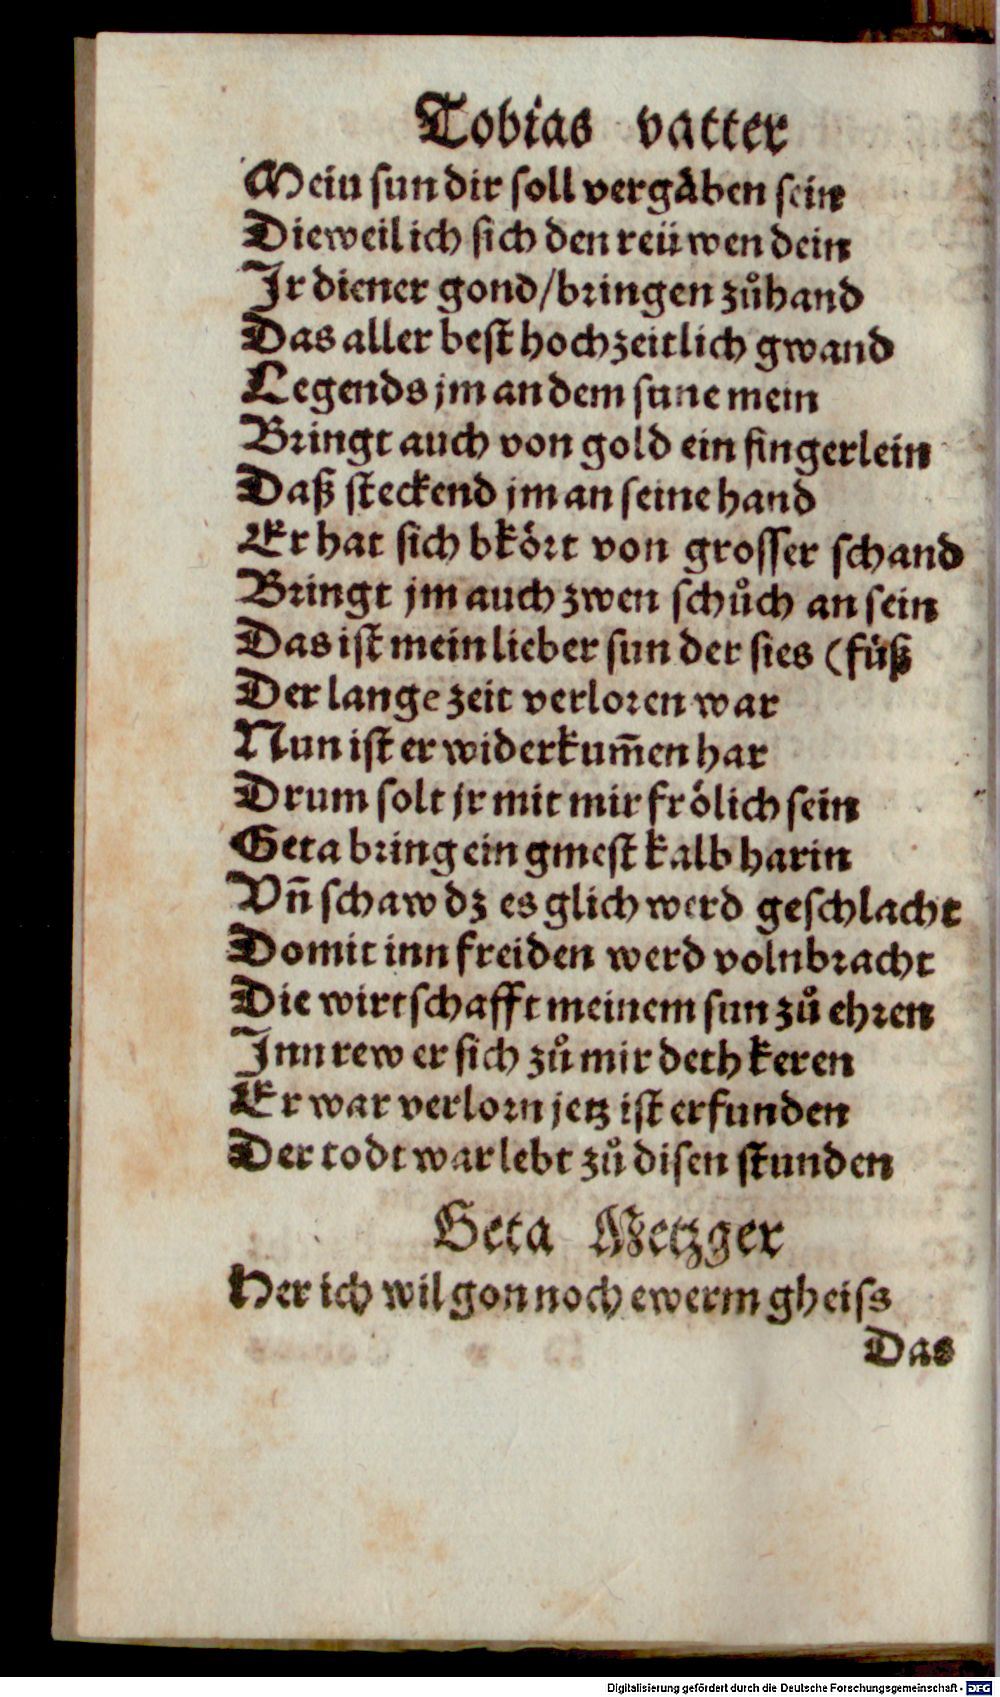 Tobias vatter
Mein sun dir soll vergäben sein
Dieweil ich sich den reüwen dein
Ir diener gond/bringen zůhand
Das aller best hochzeitlich gwand
Legends jm an dem sune mein
Bringt auch von gold ein fingerlein
Daß steckend jm an seine hand
Er hat sich bkört von grosser schand
Bringt jm auch zwen schůch an sein
Das ist mein lieber sun der sies (füß
Der lange zeit verloren war
Nun ist er widerkum̃en har
Drum solt jr mit mir frölich sein
Geta bring ein gmest kalb harin
Vñ schaw dz es glich werd geschlacht
Domit inn freiden werd volnbracht
Die wirtschafft meinem sun zů ehren
Inn rew er sich zů mir deth keren
Er war verlorn jetz ist erfunden
Der todt war lebt zů disen stunden
Geta Metzger
Her ich wil gon noch ewerm gheiss
Das
Digitalisierung gefördert durch die Deutsche Forschungsgemeinschaft - DFG